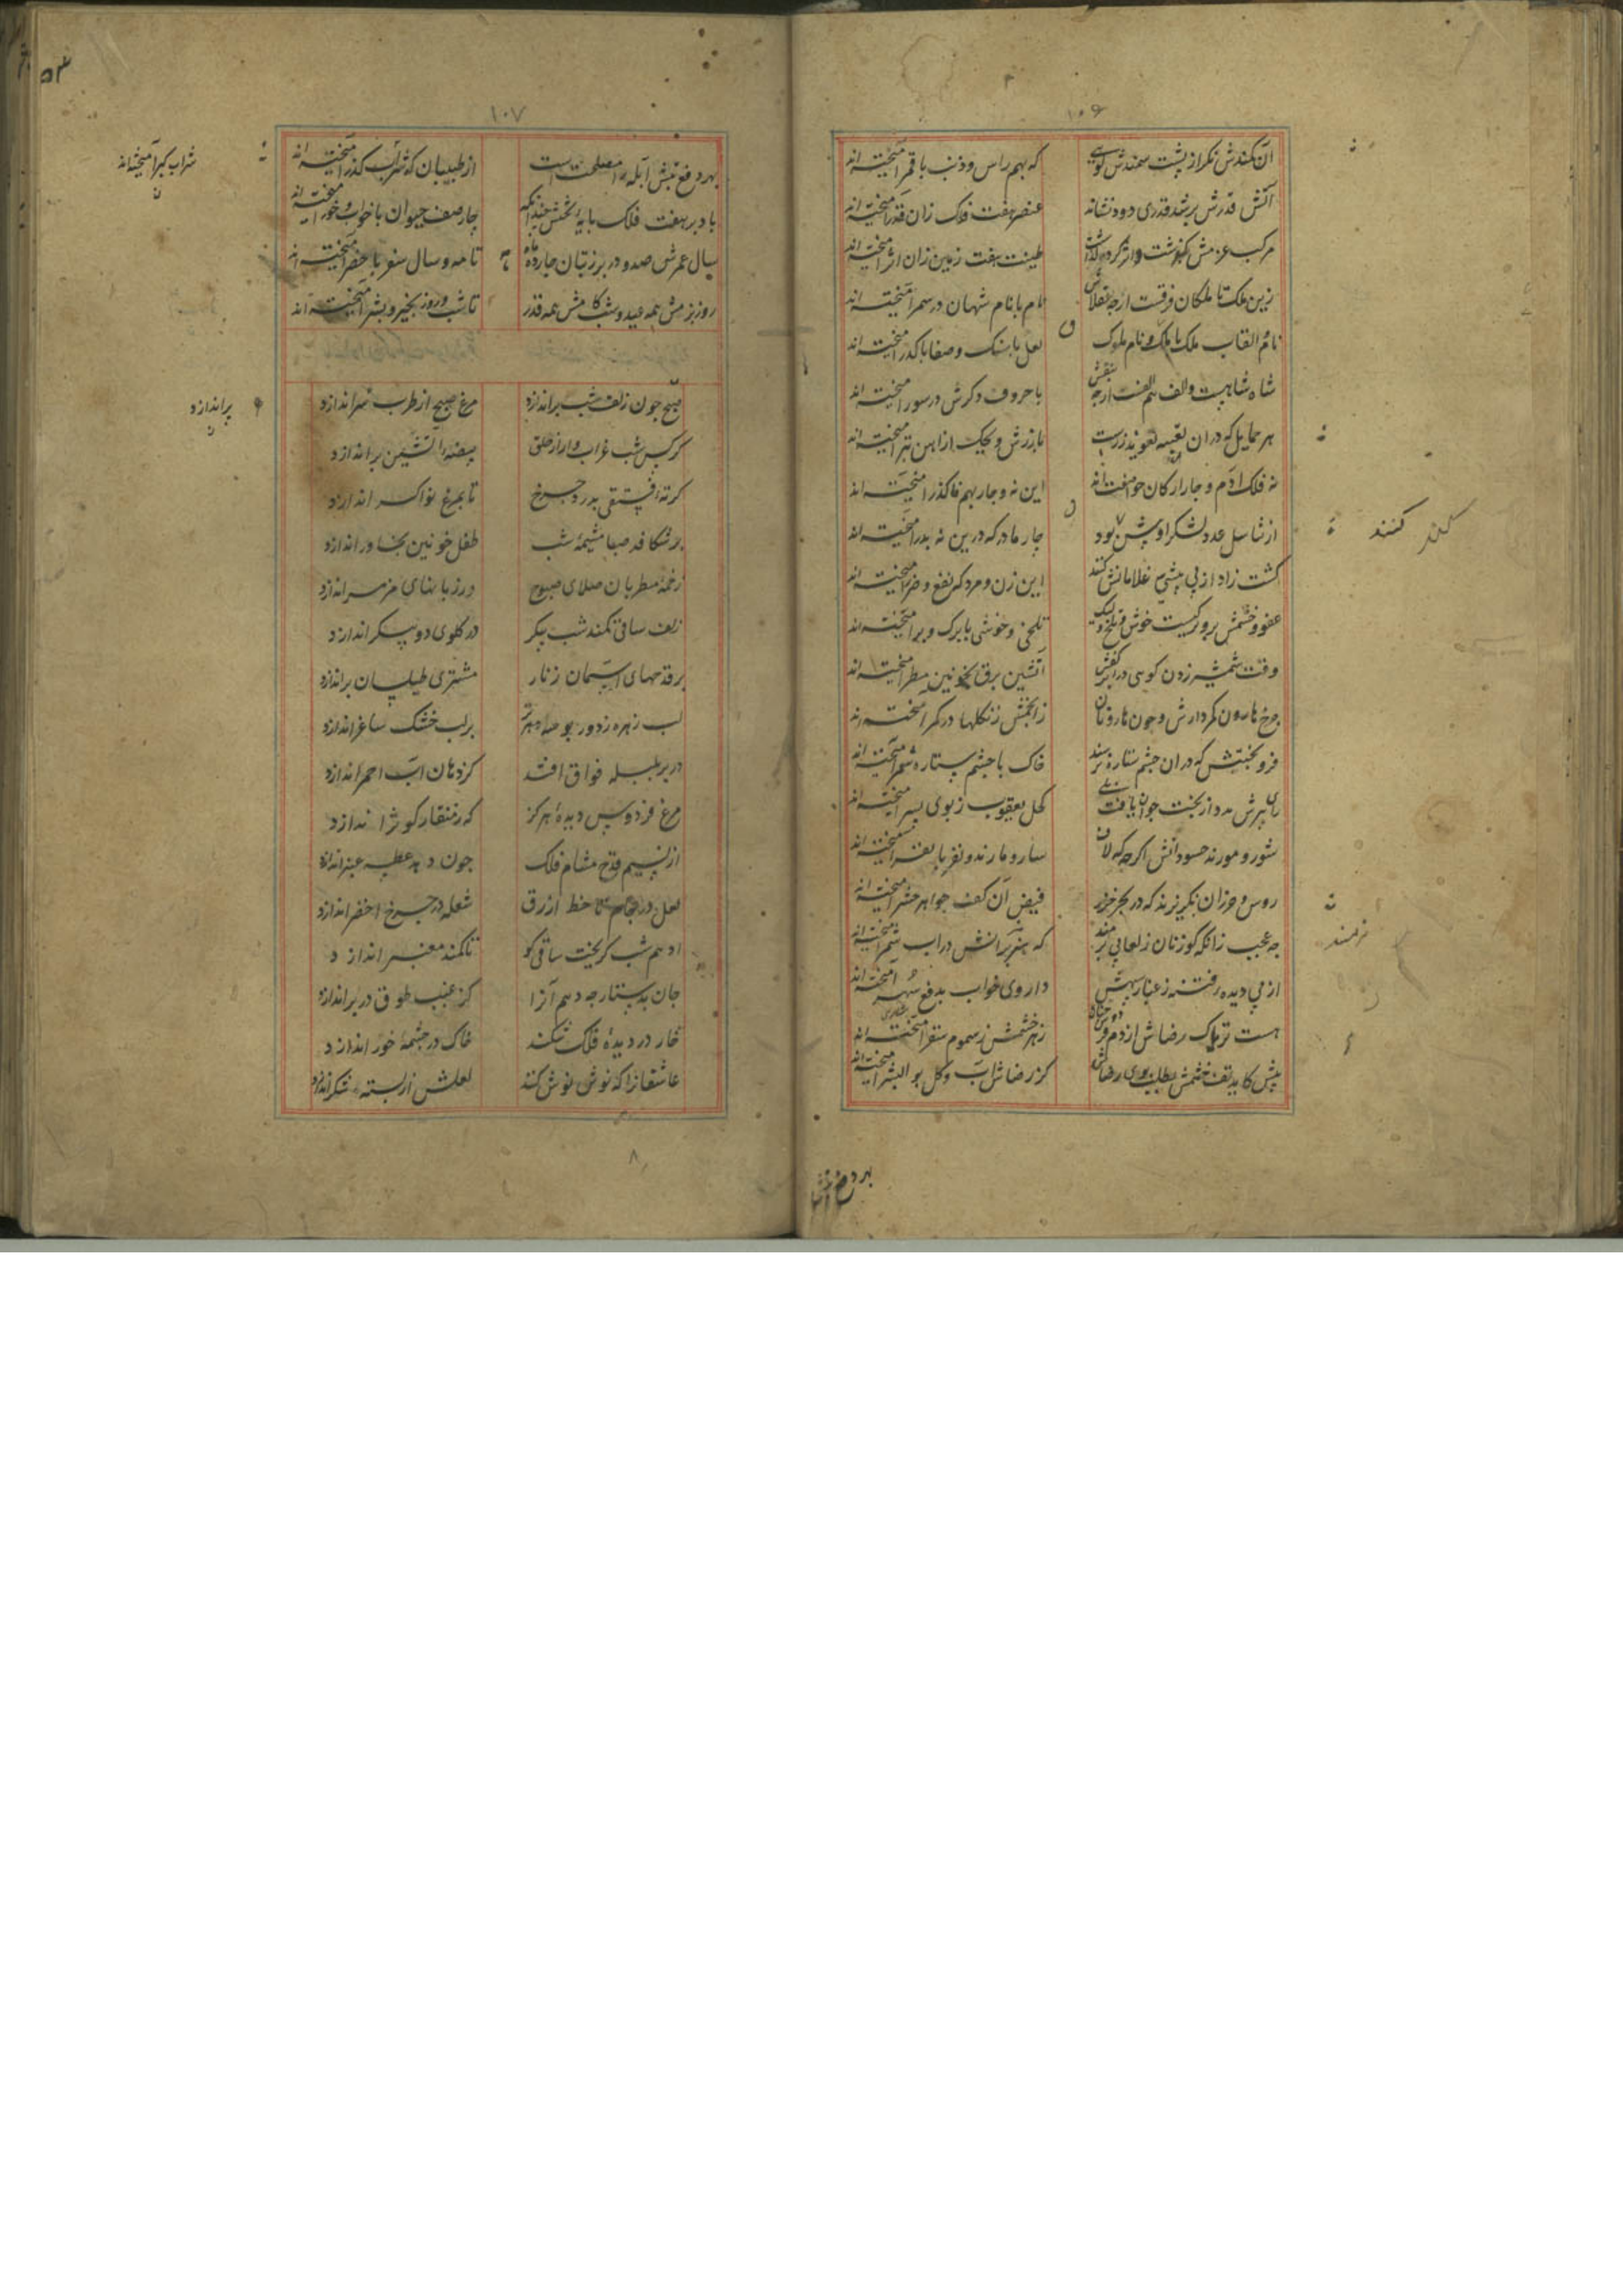 ۱۰۶
آن کمندش نگر از پشت سمندش گویی که بهم راس و ذنب با قمر آمیخته اند
آتش قدرش برشد قدری دود فشاند عنصر هفت فلک زان قدر آمیخته اند
مرکب عزمش بگذشت و اثر گرد طینت هفت زمین زان اثر آمیخته اند
زین ملک تا ملکان فرقست ارچه نام با نام شهان در سمر آمیخته اند
نام القاب ملک با و نام ملوک لعل با سنک و صفا با کدر آمیخته اند
شاه شاهیست و الف هم الفست ارچه با حروف دکرش در سور آمیخته اند
هر حمایل که در ان تعبیه تعویذ زرست با زرش ویحک از اهن تر آمیخته اند
نه فلک آدم و چار ارکان حوا صفت اند این نه و چار بهم ناکذر آمیخته اند
از تناسل عدد لشکر او بیش بود چار مادر که درین نه پدر آمیخته اند
کشت زاد از پی بیشی غلامانش کنند این زن و مرد که نفع و ضر آمیخته اند
عفو و خشمش تلخی و خوشی با برک و بر آمیخته اند
وقت شمشیر زدن گویی در ابر کفش آتشین برق بخونین مطر آمیخته اند
چرخ هارون کمر دارش و چون هارونان زانجمش زنکلها در کمر آمیخته اند
فر و بختش که در ان چشم ستاره نرسد خاک با چشم ستاره شمر آمیخته اند
رای پیرش مدد از بخت جوان یافت کحل یعقوب ز بوی پسر آمیخته اند
شور و مورند حسودانش اکرچه که لاف سار و مارند و نفر با نفر آمیخته اند
روس و خزران بگریزند که در بحر خزر فیض آن کف جواهر حشر آمیخته اند
چه عجب زانکه کوزنان ز لعابی برمند که هژبرانش در اب شمر آمیخته اند
از پی دیده رفتنه ز غبار سپهش داروی خواب بدفع سهر آمیخته اند
هست تریاک رضاش از دم زهر خشمش ز سموم سقر آمیخته اند
پیش کاید تف خشمش بطلب بوی رضاش کز رضاش آب و گل بو البشر آمیخته اند
کلند کنند
نرمند
۱۰۷
بهر دفع تبش آبله را مصلحت است از طبیبان که شراب کدر آمیخته اند
باد بر هفت فلک پایه تختش چندانکه چار صف حیوان با خواب و خور آمیخته اند
سال عمرش صد و در بر ز بتان چارده ماه تا مه و سال سفر با حضر آمیخته اند
روز بزمش همه عید و شب کامش همه قدر تا شب و روز بخیر و بشر آمیخته اند
صبح چون زلف شب براندازد مرغ صبح از طرب سر اندازد
کرکس شب غراب وار از حلق بیضه آتشین براندازد
کرته فستقی بدرد چرخ تا بمرغ نواگر اندازد
بر شکافد صبا مشیمه شب طفل خونین بخاور اندازد
زخمه مطربان صلای صبوح در زبانهای مزمر اندازد
زلف ساقی کمند شب پیکر در گلوی دو پیکر اندازد
بر قدحهای آسمان زنار مشتری طیلسان براندازد
لب زهره ز دور بوسه بر لب خشک ساغر اندازد
در بر بلبله فواق افتد کز دهان آب احمر اندازد
مرغ فردوس دیده هرگز که ز منقار کوثر اندازد
از نسیم قدح مشام فلک چون دهد عطسه عنبر اندازد
لعل در جام تا خط ازرق شعله در چرخ اخضر اندازد
ادهم شب کریخت ساقی کو تا کمند معنبر اندازد
جان بدستارچه دهم آنرا کز غبب طوق در بر اندازد
خار در دیده فلک شکند خاک در چشمه خور اندازد
عاشقانرا که نوش نوش کند لعلش از پسته شکر اندازد
شراب کبر آمیخته اند
پراندازد